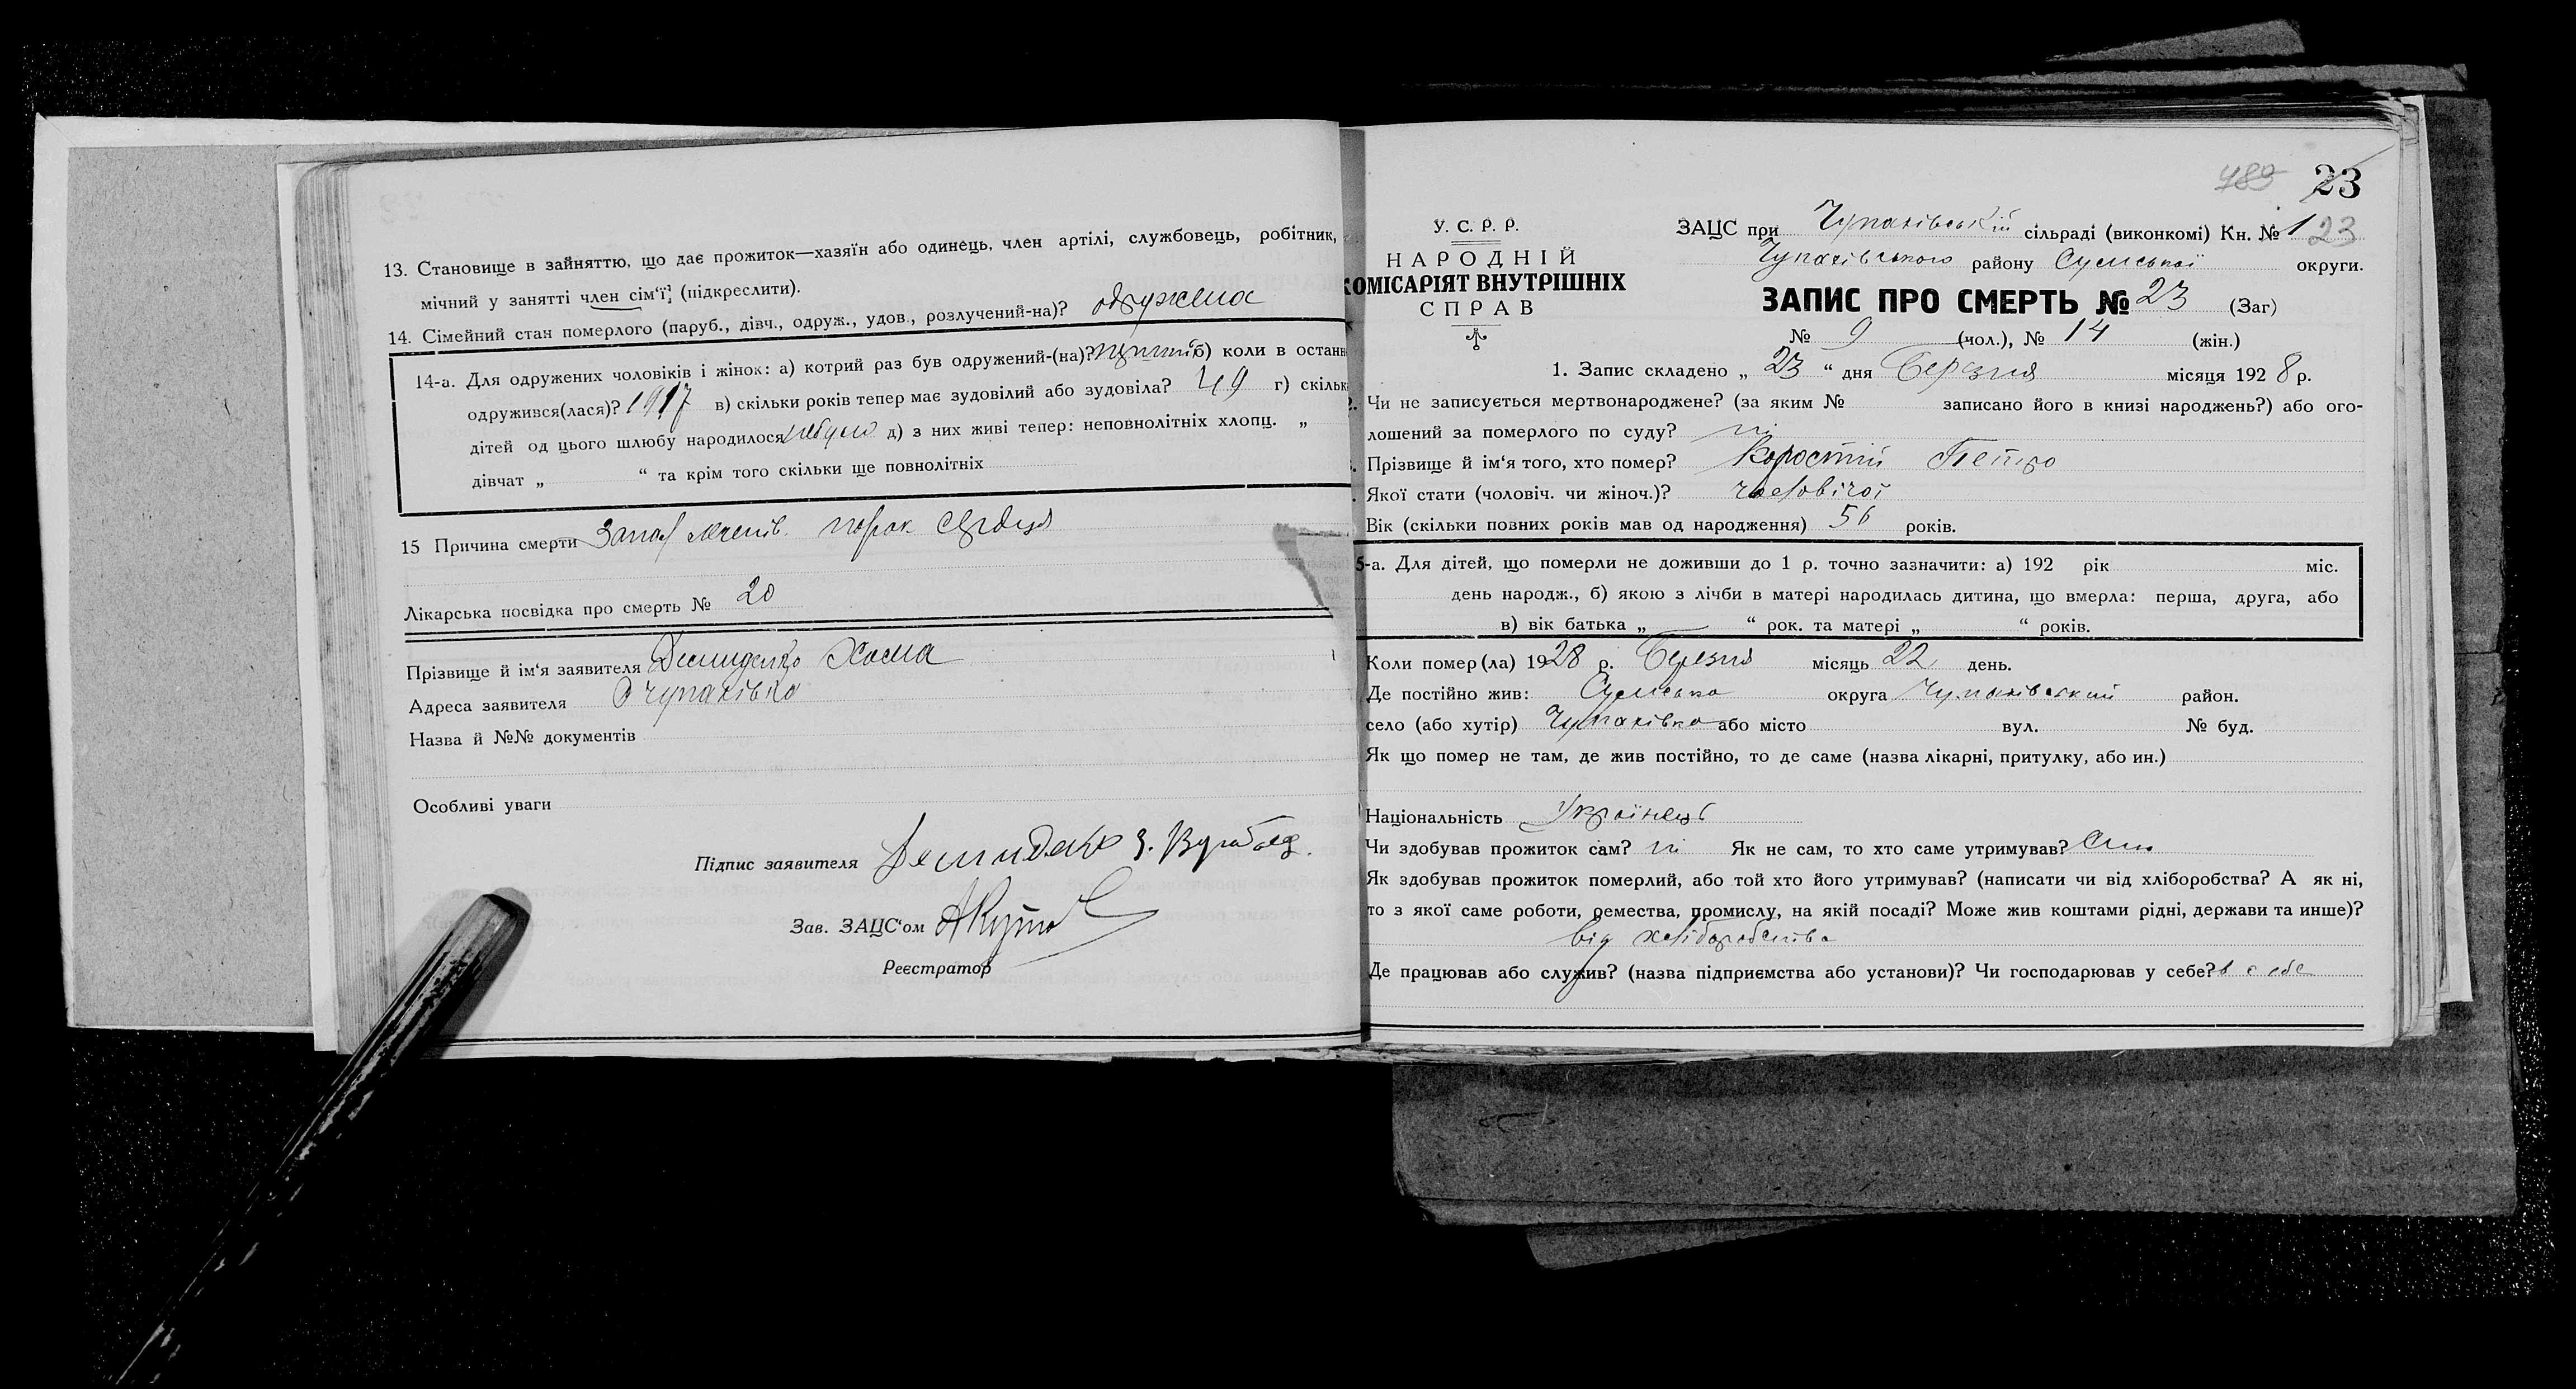 13. Становище в зайняттю, що дає прожиток—хазяїн або одинець, член артілі, службовець, робітник,
мічний у занятті член сім‘ї, (підкреслити).
14. Сімейний стан померлого (паруб., дівч., одруж., удов., розлучений-на)? одружена
14-а. Для одружених чоловіків і жінок: а) котрий раз був одружений-(на)? б) коли в останн
одружився(лася)? 1917 в) скільки років тепер має зудовілий або зудовіла? 49 г) скільк
дітей од цього шлюбу народилося небуло д) з них живі тепер: неповнолітніх хлопц. „
дівчат „ “ та крім того скільки ще повнолітніх
15 Причина смерти Запал легенів. порок сердця
Лікарська посвідка про смерть № 20
Прізвище й ім‘я заявителя Демиденко Хома
Адреса заявителя с Чупахівка
Назва й №№ документів
Особливі уваги
Підпис заявителя Демиденко
Зав. ЗАЦС‘ом
Реєстратор
489 23
У. С. Р. Р.
НАРОДНІЙ
КОМІСАРІЯТ ВНУТРІШНІХ
СПРАВ
ЗАЦС при Чупахівській сільраді (виконкомі) Кн. № 1 23
Чупахівського району Сумської округи.
ЗАПИС ПРО СМЕРТЬ № 23 (Заг)
№ 9 (чол.), № 14 (жін.)
1. Запис складено „ 23 “ дня Березня місяця 1928 р.
2. Чи не записується мертвонароджене? (за яким № записано його в книзі народжень?) або ого-
лошений за померлого по суду? ні
Прізвище й ім‘я того, хто помер? Коростій Петро
Якої стати (чоловіч. чи жіноч.)? чоловічої
Вік (скільки повних років мав од народження) 56 років.
5-а. Для дітей, що померли не доживши до 1 р. точно зазначити: а) 192 рік міс.
день народж., б) якою з лічби в матері народилась дитина, що вмерла: перша, друга, або
в) вік батька „ “ рок. та матері „ “ років.
Коли помер(ла) 1928 р. Березня місяць 22 день.
Де постійно жив: Сумська округа Чупахівський район.
село (або хутір) Чупахівка або місто вул. № буд.
Як що помер не там, де жив постійно, то де саме (назва лікарні, притулку, або ин.)
Національність Українець
Чи здобував прожиток сам? ні Як не сам, то хто саме утримував? Син
Як здобував прожиток померлий, або той хто його утримував? (написати чи від хліборобства? А як ні,
то з якої саме роботи, ремества, промислу, на якій посаді? Може жив коштами рідні, держави та инше)?
від хліборобства
Де працював або служив? (назва підприємства або установи)? Чи господарював у себе? в себе